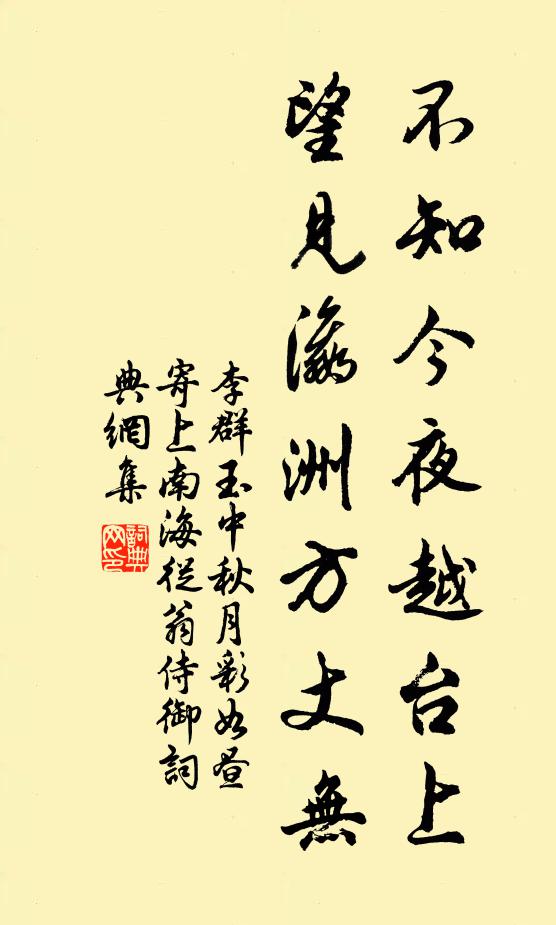 不知今夜越台上
望見瀛洲方丈無
李群玉中秋月彩如晝
寄上南海從翁侍御詞
典網集
詞典网印